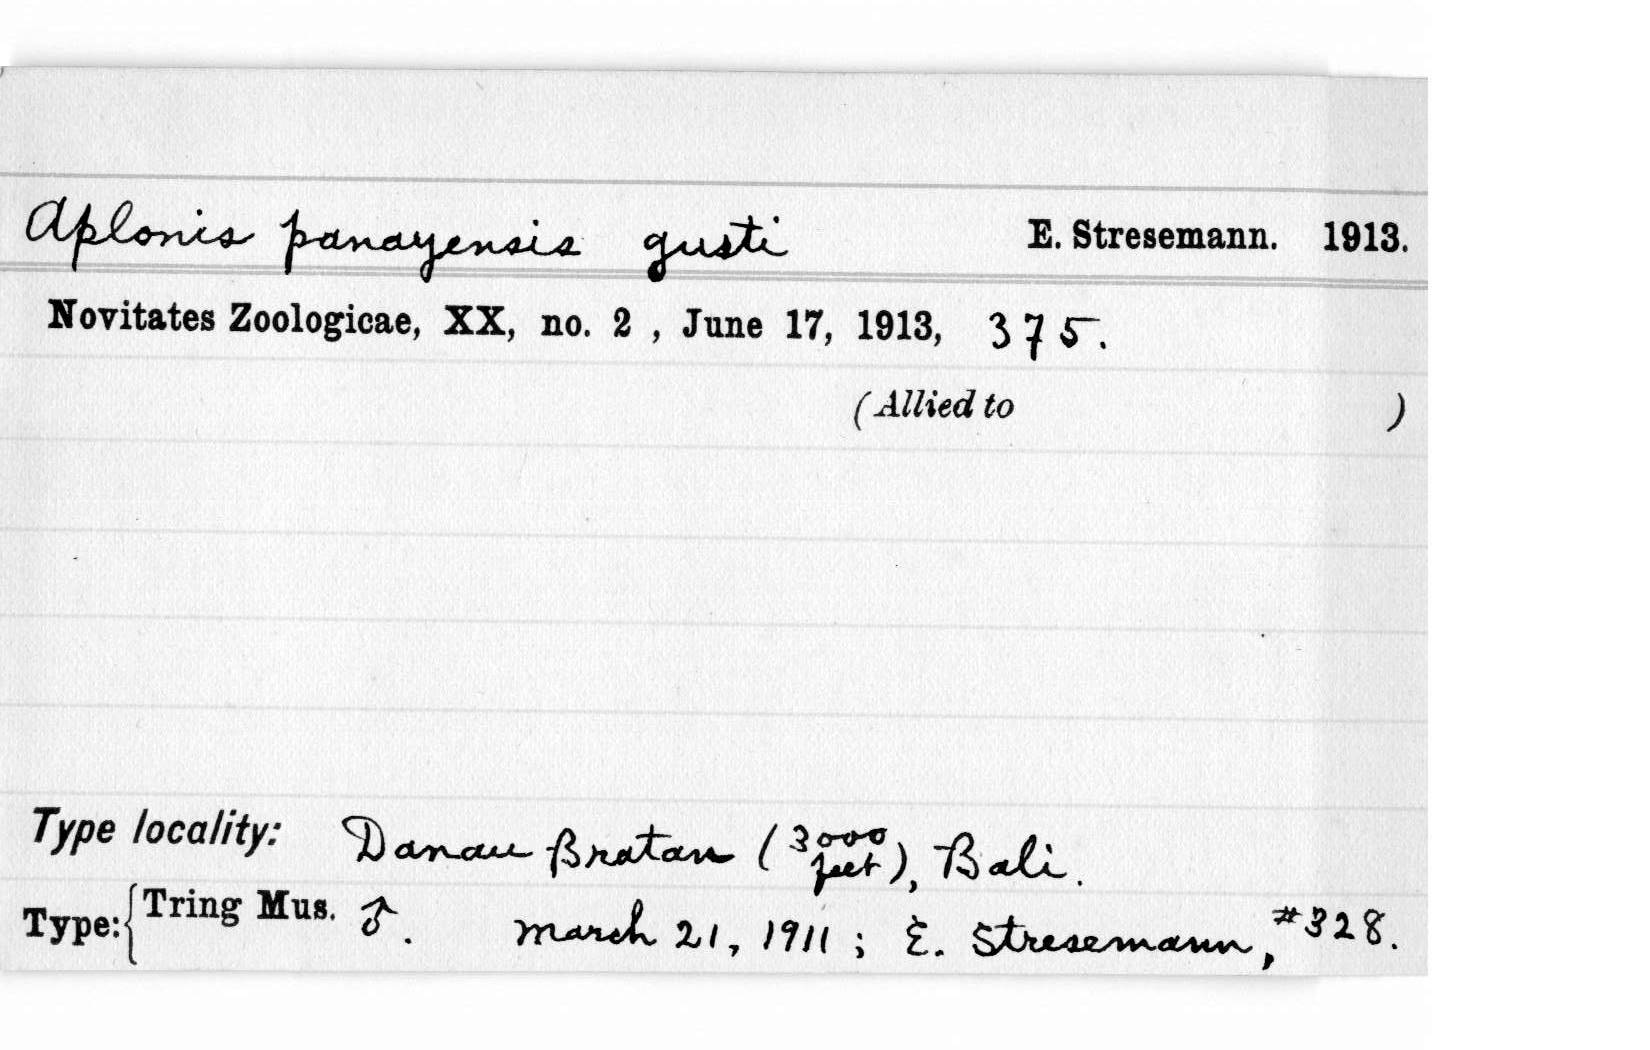 Aplonis panayensis gusti E. Stresemann. 1913.
Novitates Zoologicae, XX, no. 2 , June 17, 1913, 375.
(Allied to )
Type locality: Danau Bratan (3000 feet), Bali.
Type: { Tring Mus. ♂. March 21, 1911 ; E. Stresemann, #328.